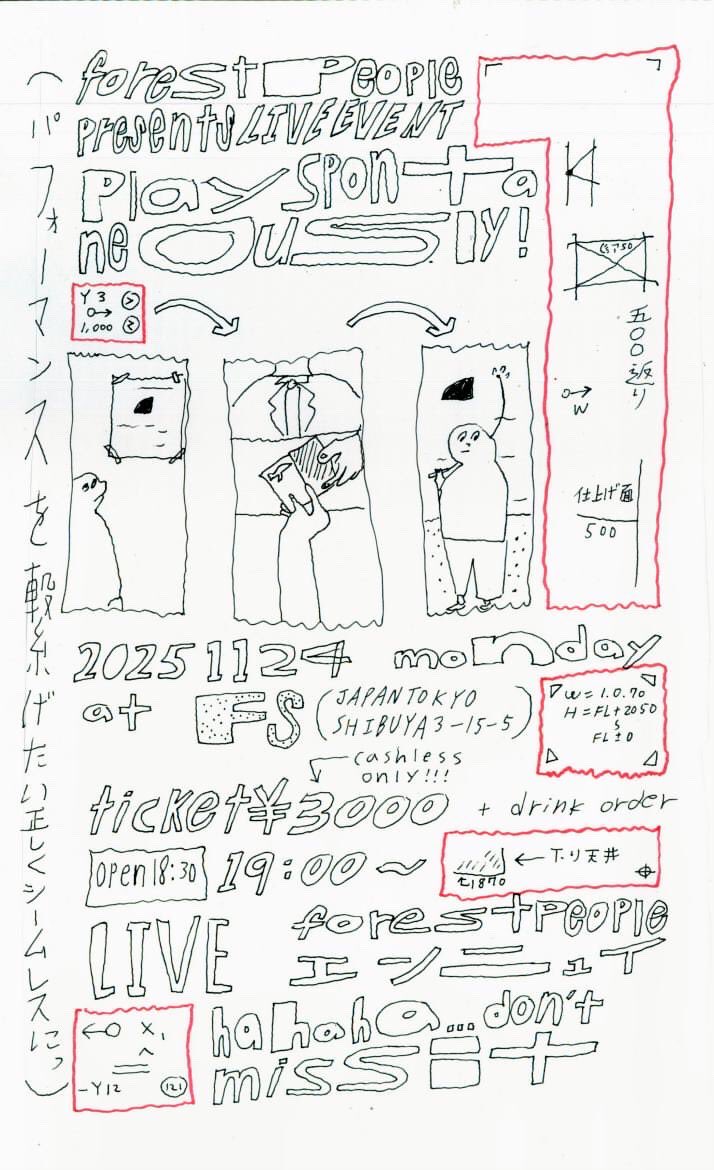 forest People
presents LIVE EVENT
Play sponta
neously!
(パフォーマンスを繋げたい正しくシームレスにっ)
Y3
1,000
五〇〇返り
W
仕上げ面
500
2025 11 24 monday
at FS (JAPAN TOKYO
SHIBUYA 3-15-5)
W=1.0.70
H=FL+2050
FL±0
cashless
only!!!
ticket ¥3000 + drink order
OPen 18:30 19:00〜
←下り天井
LIVE forest People
エンニュイ
hahaha...don't
miss it
X1
-Y12
121